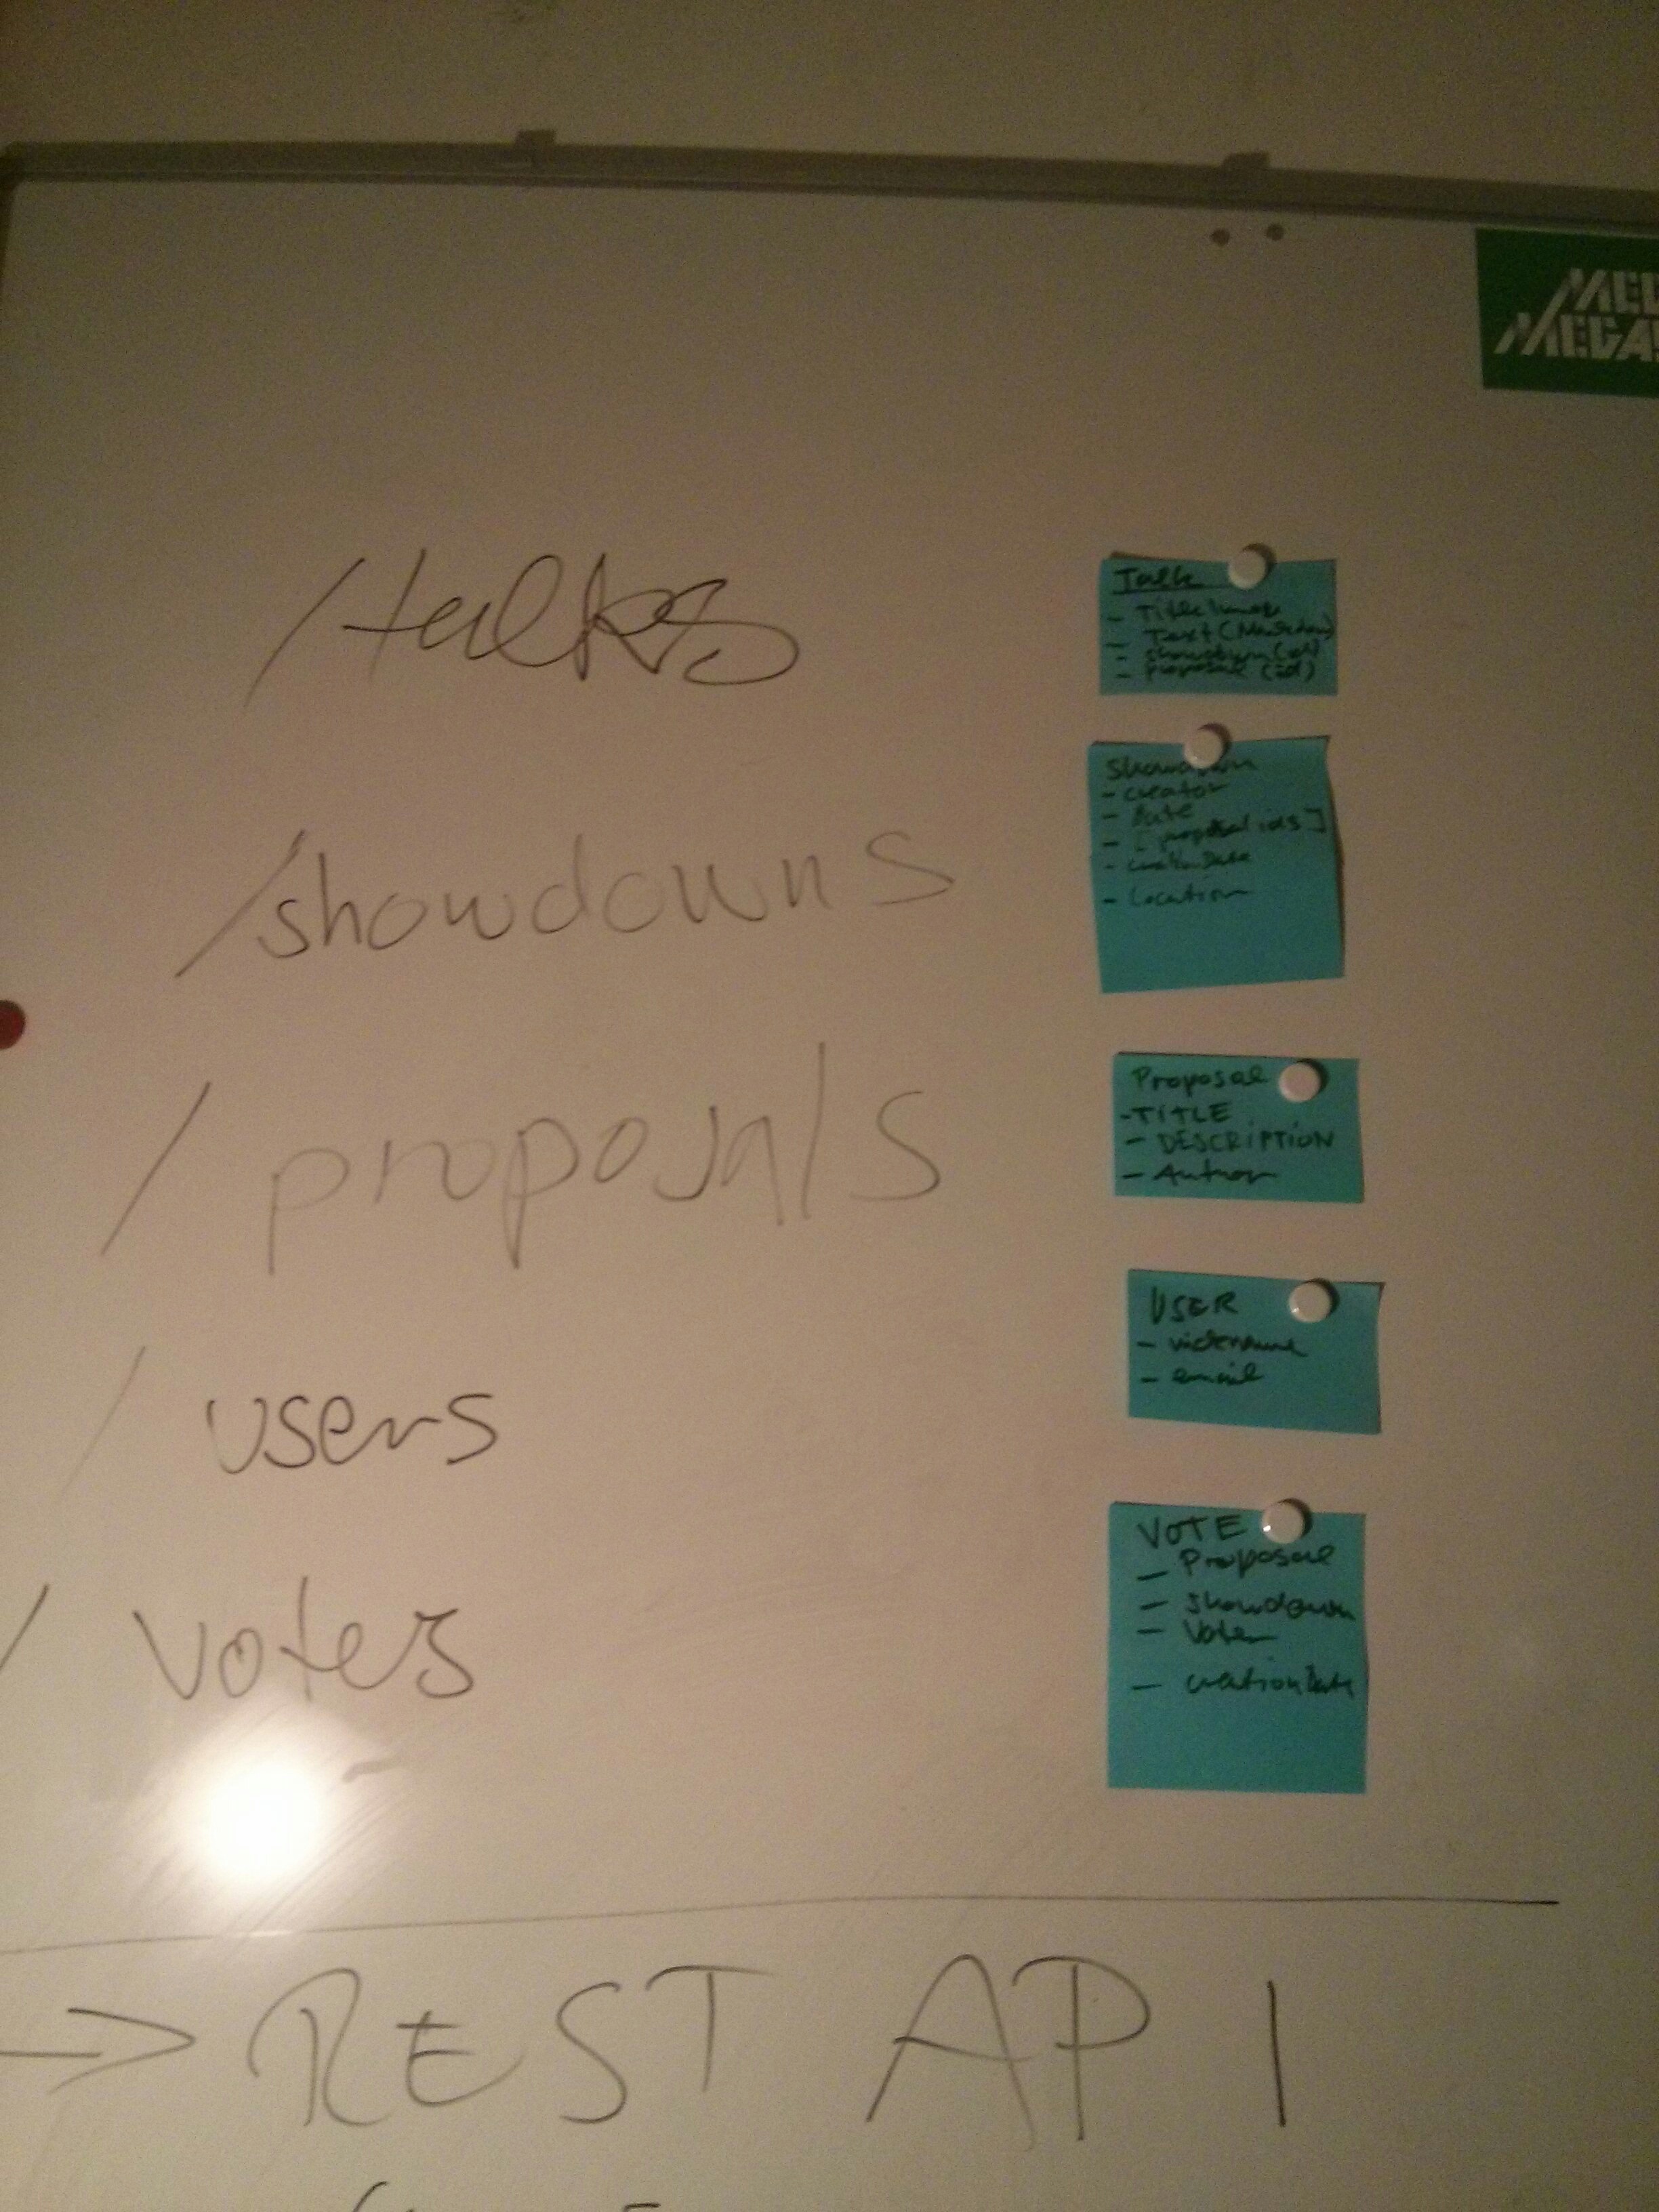 /talks
Talk
- Title/Image
- Text (Markdown)
- showdown (id)
- proposal (id)
/showdowns
showdown
- creator
- Date
- [proposal ids]
- creationDate
- Location
/proposals
Proposal
- TITLE
- DESCRIPTION
- Author
/users
USER
- nickname
- email
/votes
VOTE
- Proposal
- showdown
- Voter
- creationDate
→ REST API